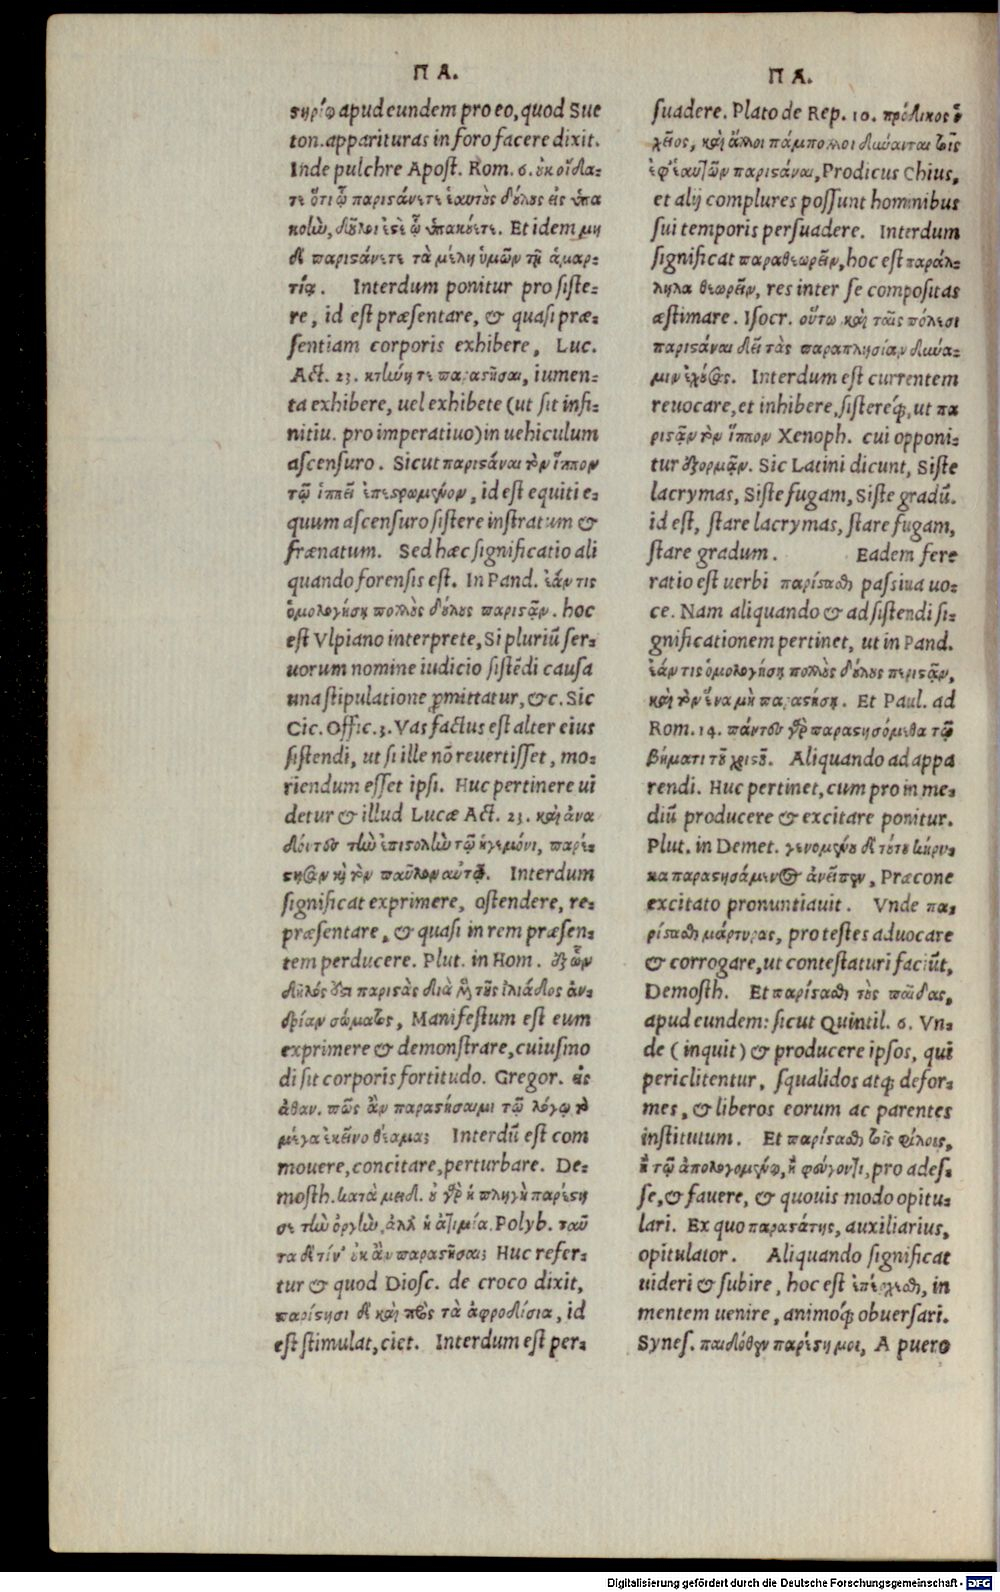 Π Α.
ϛηρίῳ apud eundem pro eo, quod Sue
ton. apparituras in foro facere dixit.
Inde pulchre Apoſt. Rom. 6. ὐκ οἴδα-
τε ὅτι ᾧ παριϛάνετε ἑαυτὸς δύλυς εἰς ὑπα
κοlὼ, δῦλοι ἐϛὲ ᾧ ὑπακύετε. Et idem μη
δὲ παριϛάνετε τὰ μέλη ὑμῶν τῇ ἁμαρ-
τίᾳ. Interdum ponitur pro ſiſte-
re, id eſt præſentare, & quaſi præ-
ſentiam corporis exhibere, Luc.
Act. 23. κτlώη τε παραϛῆσαι, iumen-
ta exhibere, uel exhibete (ut ſit infi-
nitiu. pro imperatiuo) in uehiculum
aſcenſuro. Sicut παριϛάναι τὸν ἵππον
τῷ ἱππεῖ ἐπεϛρωμένον, id eſt equiti e-
quum aſcenſuro ſiſtere inſtratum &
frænatum. Sed hæc ſignificatio ali
quando forenſis eſt. In Pand. ἐάν τις
ὁμολογήσῃ πολλὸς δύλυς παριϛᾷν. hoc
eſt Vlpiano interprete, Si pluriū ſer-
uorum nomine iudicio ſiſtēdi cauſa
una ſtipulatione ꝓmittatur, &c. Sic
Cic. Offic. 3. Vas factus eſt alter eius
ſiſtendi, ut ſi ille nō reuertiſſet, mo-
riendum eſſet ipſi. Huc pertinere ui
detur & illud Lucæ Act. 23. καὶ ἀνα
δόντες τlὼ ἐπιϛολlὼ τῷ ἡγεμόνι, παρέ-
ϛησαν κὴ τὸν παῦλον αὐτῷ. Interdum
ſignificat exprimere, oſtendere, re-
præſentare, & quaſi in rem præſen-
tem perducere. Plut. in Hom. ἐξ ὧν
δῆλός ὅϛι παριϛὰς διὰ ᾗ τῆς ἰλιάδος ἀν-
δρίαν σώματος, Manifeſtum eſt eum
exprimere & demonſtrare, cuiuſmo
di ſit corporis fortitudo. Gregor. εἰς
ἀθαν. πῶς ἂν παραϛήσαιμι τῷ λόγῳ τὸ
μέγα ἐκεῖνο θέαμα; Interdū eſt com
mouere, concitare, perturbare. De-
moſth. κατὰ μειδ. ὐ γὸ ἡ πληγὴ παρέϛη
σε τlὼ ὀργlὼ, ἀλλ' ἡ ἀτιμία. Polyb. ταῦ
τα δὲ τίν' ὐκ ἂν παραϛῆσαι; Huc refer-
tur & quod Dioſc. de croco dixit,
παρίϛησι δὲ καὶ πρὸς τὰ ἀφροδίσια, id
eſt ſtimulat, ciet. Interdum eſt per-
Π Α.
ſuadere. Plato de Rep. 10. πρόδικος ὁ
χεῖος, καὶ ἄλλοι πάμπολλοι δύνανται τοῖς
ἐφ' ἑαυτῶν παριϛάναι, Prodicus Chius,
et alij complures poſſunt hominibus
ſui temporis perſuadere. Interdum
ſignificat παραθεωρεῖν, hoc eſt παράλ-
ληλα θεωρεῖν, res inter ſe compoſitas
æſtimare. Iſocr. οὕτω καὶ ταῖς πόλεσι
παριϛάναι δεῖ τὰς παραπλησίαν δύνα-
μιν ἐχύσας. Interdum eſt currentem
reuocare, et inhibere, ſiſtereq́;, ut πα
ριϛᾷν τὸν ἵππον Xenoph. cui opponi-
tur ἐξορμᾷν. Sic Latini dicunt, Siſte
lacrymas, Siſte fugam, Siſte gradū.
id eſt, ſtare lacrymas, ſtare fugam,
ſtare gradum. Eadem fere
ratio eſt uerbi παρίϛαϑς paſſiua uo-
ce. Nam aliquando & ad ſiſtendi ſi-
gnificationem pertinet, ut in Pand.
ἐάν τις ὁμολογήσῃ πολλὸς δύλυς περιϛᾷν,
καὶ τὸν ἕνα μὴ παραϛήσῃ. Et Paul. ad
Rom. 14. πάντες γὸ παραϛησόμεθα τῷ
βήματι τῦ χριϛῦ. Aliquando ad appa
rendi. Huc pertinet, cum pro in me-
diū producere & excitare ponitur.
Plut. in Demet. γενομένυ δὲ τύτυ κήρυ-
κα παραϛησάμενος ἀνεῖπεν, Præcone
excitato pronuntiauit. Vnde πα-
ρίϛαϑς μάρτυρας, pro teſtes aduocare
& corrogare, ut conteſtaturi faciūt,
Demoſth. Et παρίϛαϑς τὸς παῖδας,
apud eundem: ſicut Quintil. 6. Vn-
de (inquit) & producere ipſos, qui
periclitentur, ſqualidos atq; defor-
mes, & liberos eorum ac parentes
inſtitutum. Et παρίϛαϑς τοῖς φίλοις,
ἢ τῷ ἀπολογομένῳ, ἢ φεύγοντι, pro adeſ-
ſe, & fauere, & quouis modo opitu-
lari. Ex quo παραϛάτης, auxiliarius,
opitulator. Aliquando ſignificat
uideri & ſubire, hoc eſt ἐπέρχεϑς, in
mentem uenire, animoq́; obuerſari.
Syneſ. παιδιόθεν παρέϛη μοι, A puero
Digitalisierung gefördert durch die Deutsche Forschungsgemeinschaft - DFG